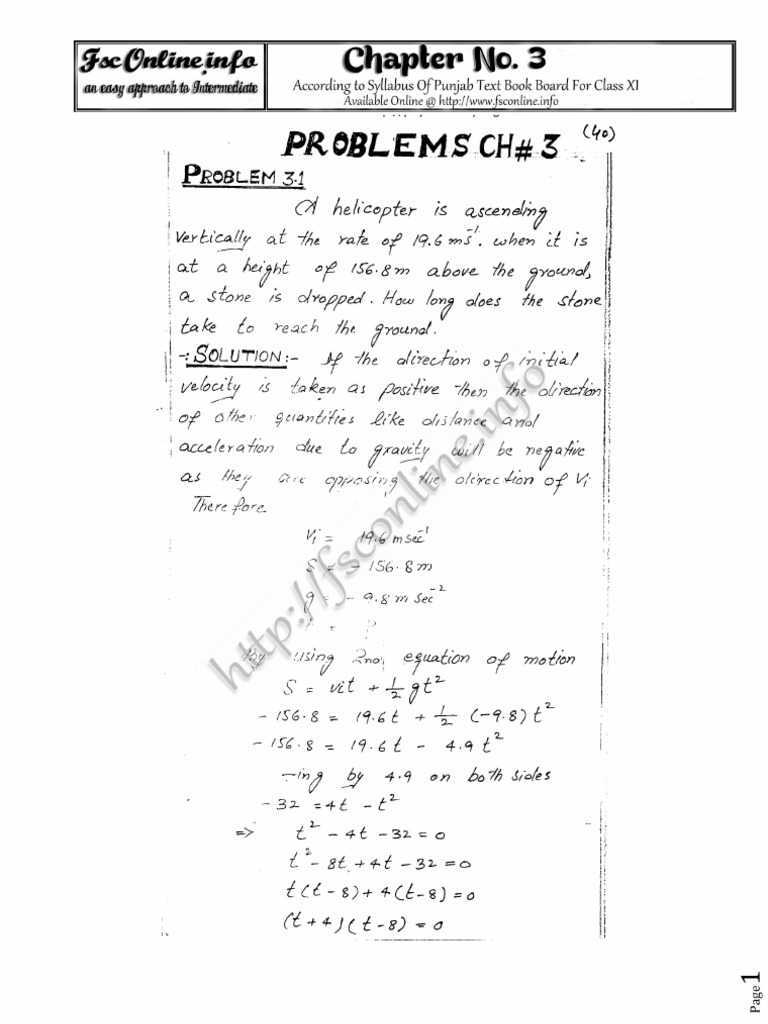 Fsc Online.info
an easy approach to Intermediate
Chapter No. 3
According to Syllabus Of Punjab Text Book Board For Class XI
Available Online @ http://www.fsconline.info
PROBLEMS CH# 3 (40)
PROBLEM 3.1
A helicopter is ascending
vertically at the rate of 19.6 ms⁻¹. when it is
at a height of 156.8m above the ground,
a stone is dropped. How long does the stone
take to reach the ground.
-: SOLUTION:- If the direction of initial
velocity is taken as positive then the direction
of other quantities like distance and
acceleration due to gravity will be negative
as they are opposing the direction of Vi
Therefore
Vi = 19.6 m sec⁻¹
S = - 156.8 m
g = - 9.8 m sec⁻²
t = ?
By using 2nd equation of motion
S = vit + 1/2 gt²
- 156.8 = 19.6t + 1/2 (-9.8) t²
- 156.8 = 19.6t - 4.9 t²
÷ing by 4.9 on both sides
- 32 = 4t - t²
=> t² - 4t - 32 = 0
t² - 8t + 4t - 32 = 0
t(t-8) + 4(t-8) = 0
(t+4)(t-8) = 0
http://fsconline.info
Page 1